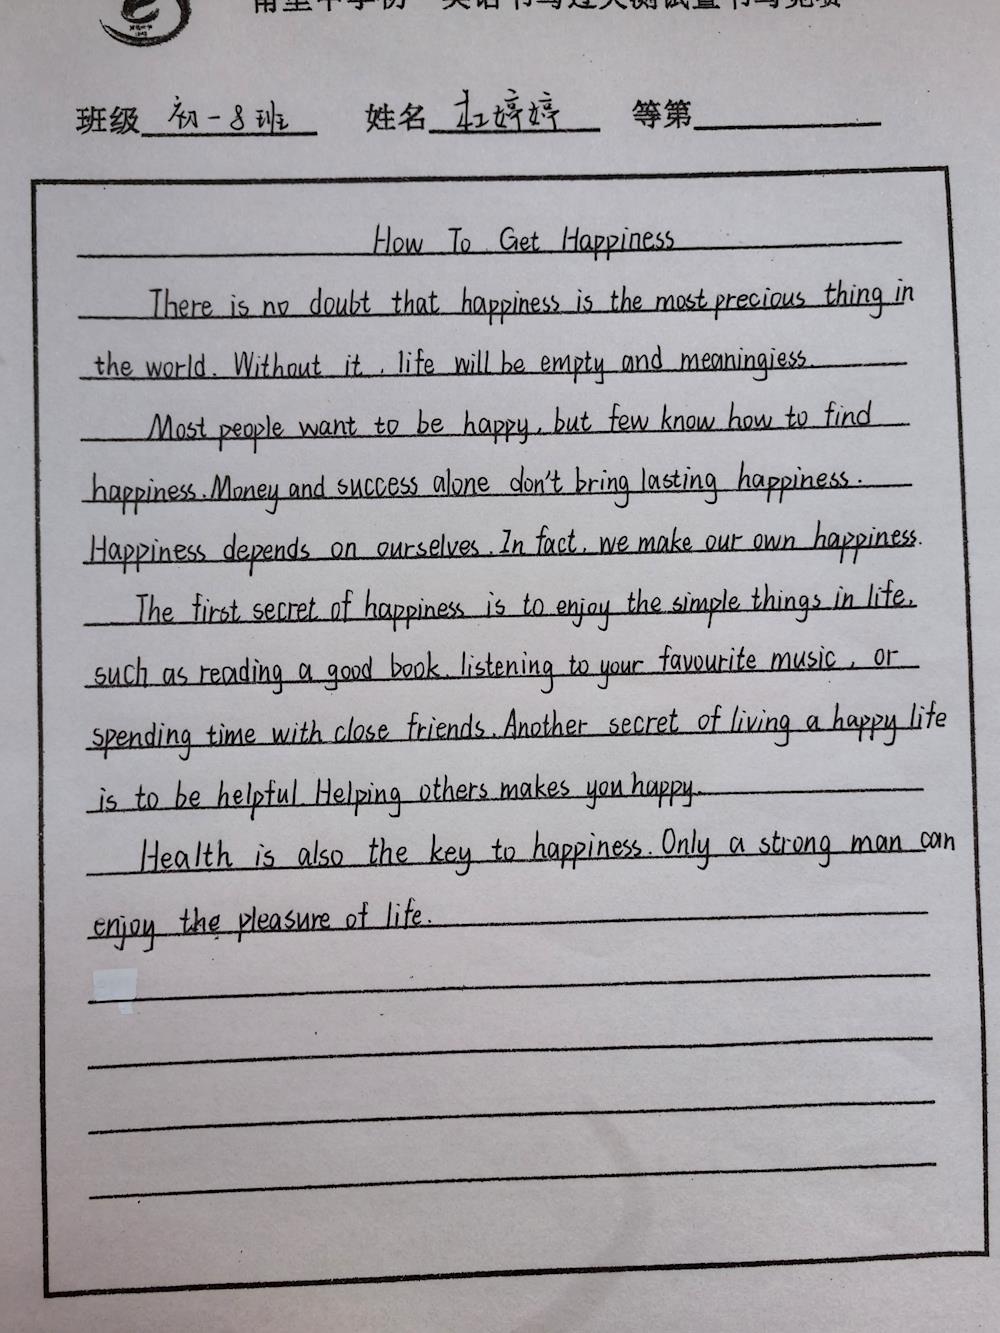 班级 初一8班 姓名 杜婷婷 等第
How To Get Happiness
There is no doubt that happiness is the most precious thing in
the world. Without it, life will be empty and meaningiess.
Most people want to be happy, but few know how to find
happiness. Money and success alone don't bring lasting happiness.
Happiness depends on ourselves. In fact, we make our own happiness.
The first secret of happiness is to enjoy the simple things in life,
such as reading a good book, listening to your favourite music, or
spending time with close friends. Another secret of living a happy life
is to be helpful. Helping others makes you happy.
Health is also the key to happiness. Only a strong man can
enjoy the pleasure of life.